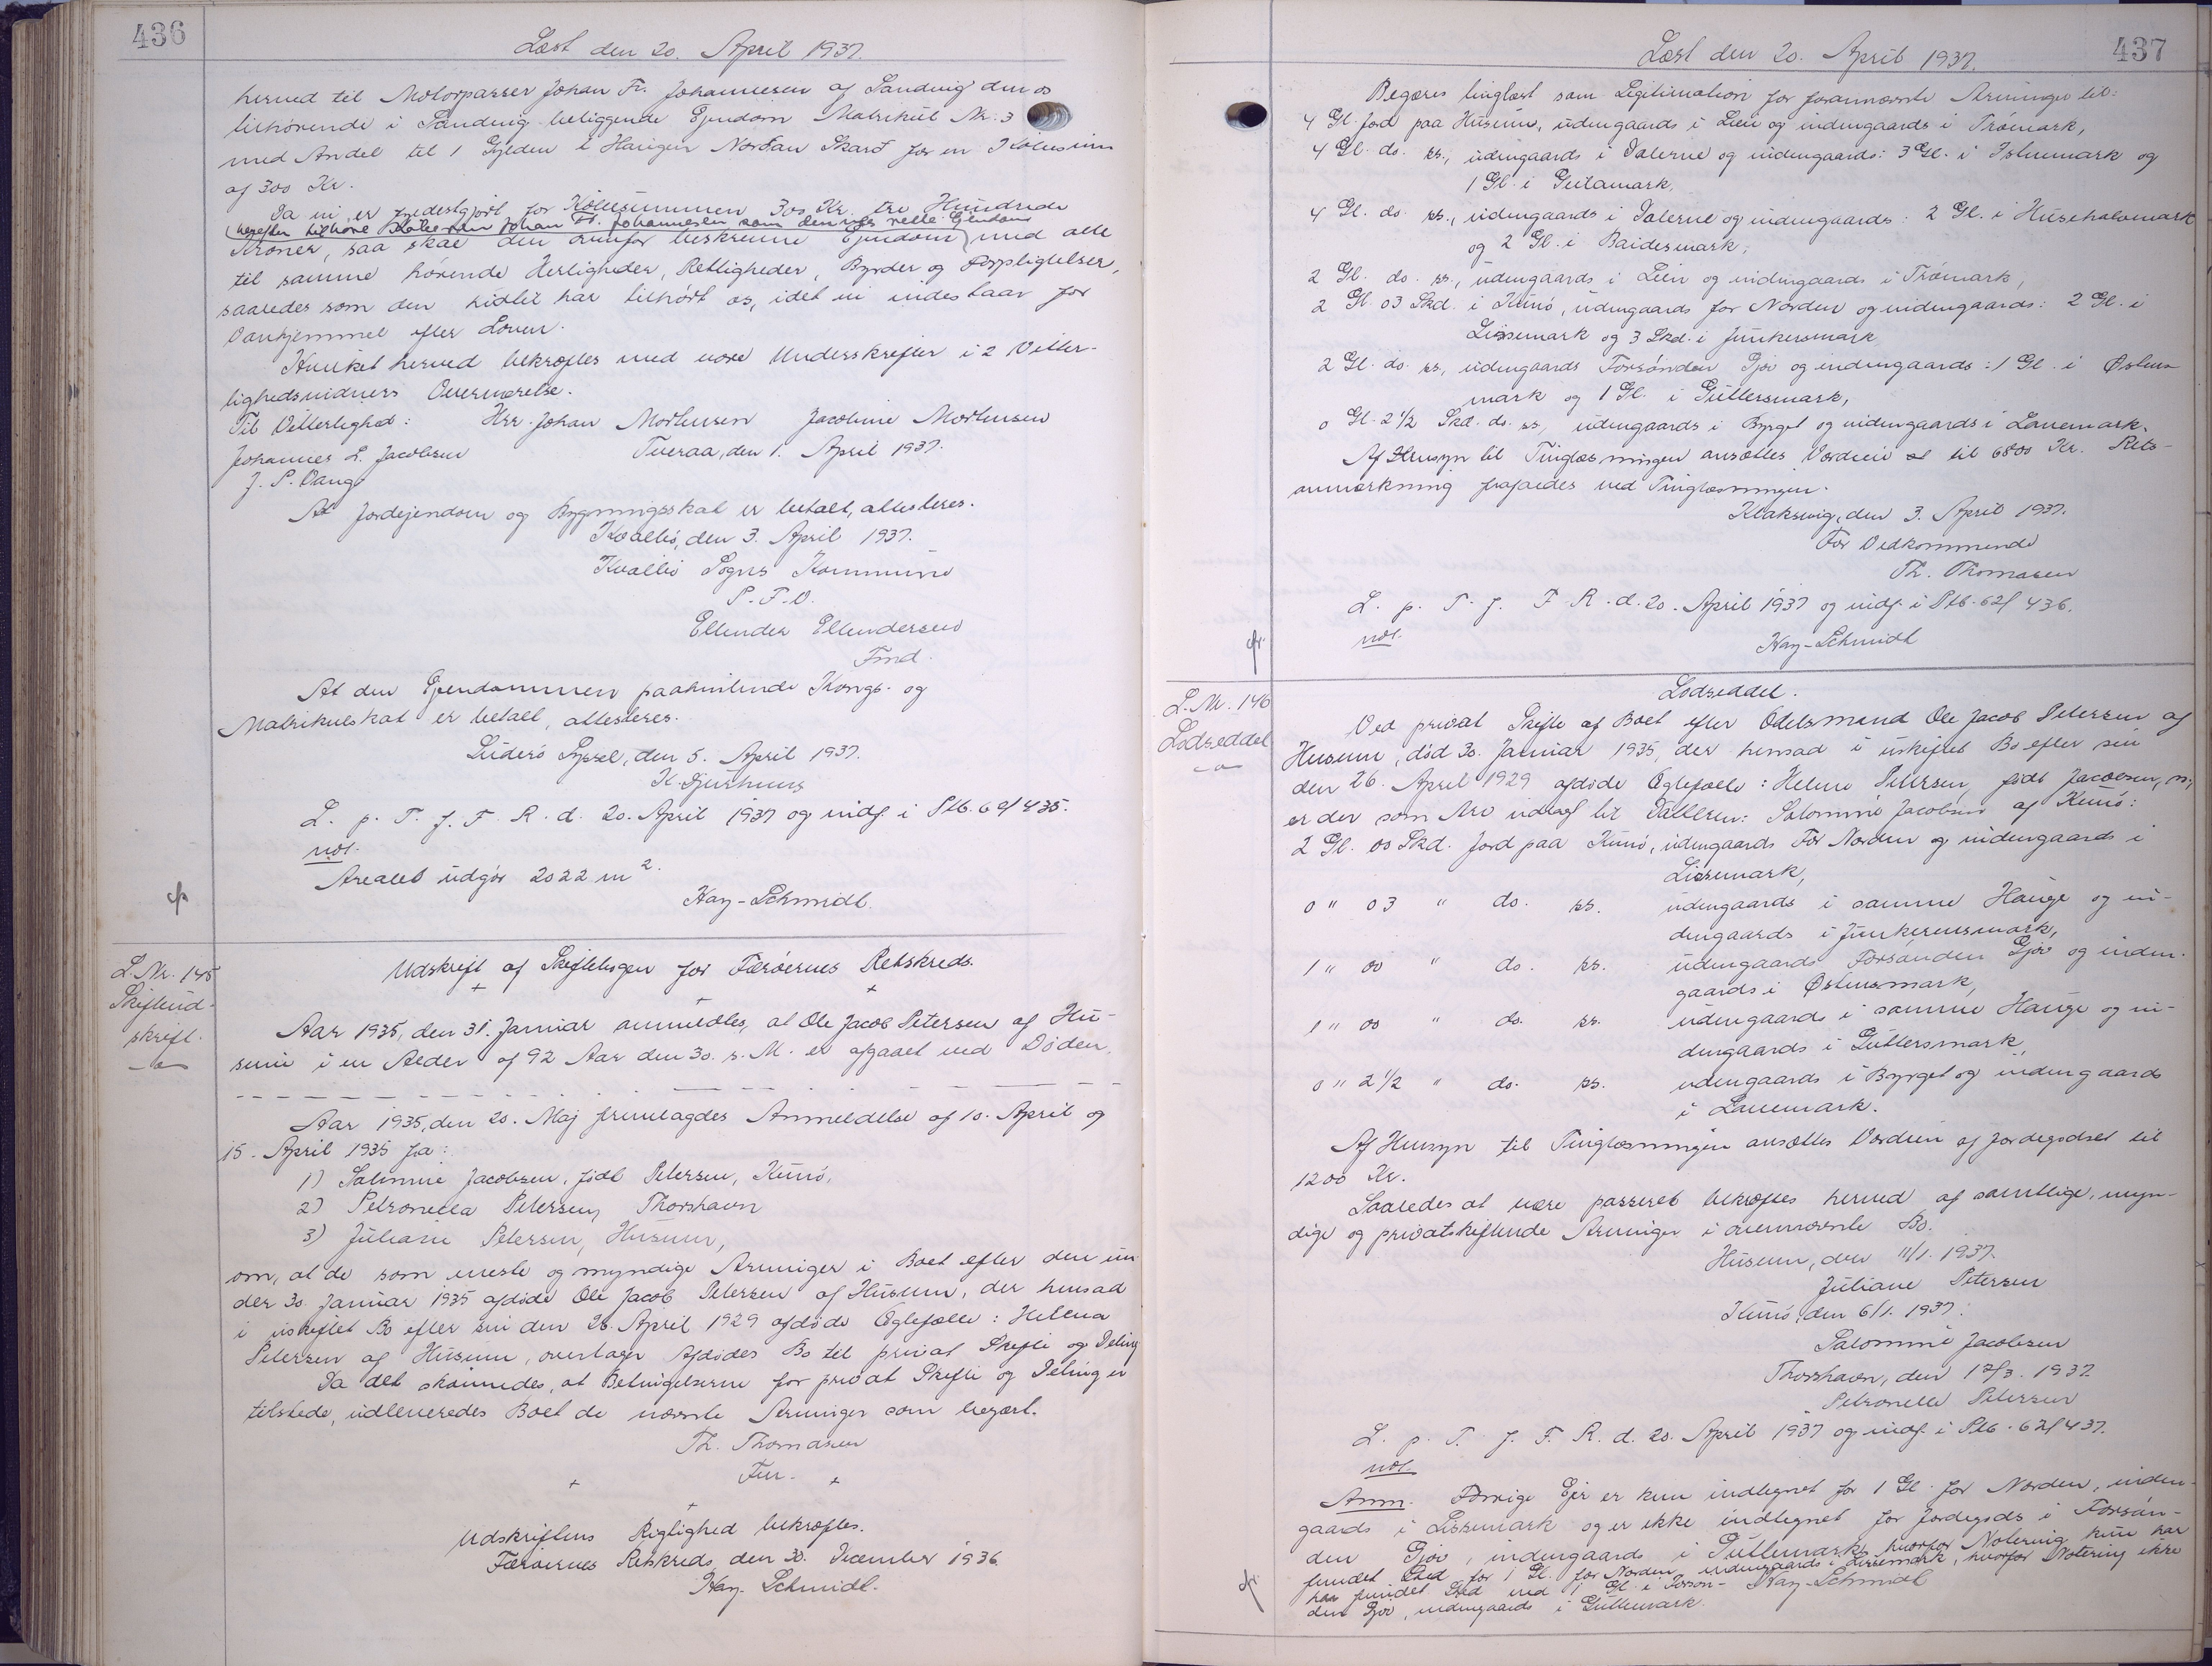 436
Læst den 20. April 1937.
herved til Motorpasser Johan Fr. Johannesen af Sandvig den os
tilhørende i Sandvig beliggende Ejendom Matrikul Nr. 3
med Andel til 1 Gylden i Haugen Nordan Skard for en Købesum
af 300 Kr.
Da vi er fyldestgjort for Købesummen 300 Kr. tre Hundrede
herefter tilhøre Køberen Johan Fr. Johannesen som dennes rette Ejendom
Kroner, saa skal den ovenfor beskrevne Ejendom med alle
til samme hørende Herligheder, Rettigheder, Byrder og Forpligtelser,
saaledes som den hidtil har tilhørt os, idet vi indestaar for
Vanhjemmel efter Loven.
Hvilket herved bekræftes med vore Underskrifter i 2 Vitter-
lighedsvidners Overværelse.
Til Vitterlighed: Hrr. Johan Mortensen Jacobine Mortensen
Johannes L. Jacobsen Tveraa, den 1. April 1937.
J. P. Vang
At Jordejendom og Bygningsskat er betalt, attesteres.
Kvalbø, den 3. April 1937.
Kvalbø Sogns Kommune
P. F. V.
Ellender Ellendersen
Fmd.
At den Ejendommen paahvilende Kongs- og
Matrikulskat er betalt, attesteres.
Suderø Syssel, den 5. April 1937.
K. Djurhuus
L. p. T. f. F. R. d. 20. April 1937 og indf. i Ptb. 6 9/435.
not.
Arealet udgør 2022 m².
Kay-Schmidt.
L. Nr. 145
Skifteud-
skrift.
Udskrift af Skiftebogen for Færøernes Retskreds.
Aar 1935, den 31. Januar anmeldtes, at Ole Jacob Petersen af Hu-
sum i en Alder af 92 Aar den 30. s. M. er afgaaet ved Døden.
Aar 1935, den 20. Maj fremlagdes Anmeldelse af 10. April og
15. April 1935 fra:
1) Salomine Jacobsen, født Petersen, Kunø,
2) Petronella Petersen, Thorshavn
3) Juliane Petersen, Husum,
om, at de som eneste og myndige Arvinger i Boet efter den un
der 30. Januar 1935 afdøde Ole Jacob Petersen af Husum, der hensad
i uskiftet Bo efter sin den 26. April 1929 afdøde Ægtefælle: Helena
Petersen af Husum, overtager Afdødes Bo til privat Skifte og Deling
Da det skønnedes, at Betingelserne for privat Skifte og Deling er
tilstede, udleveredes Boet de nævnte Arvinger som begært.
Th. Thomasen
Fm.
Udskriftens Rigtighed bekræftes.
Færøernes Retskreds, den 30. December 1936
Kay-Schmidt.
437
Læst den 20. April 1937.
Begæres tinglæst som Legitimation for forannævnte Arvinger til:
4 Gl. Jord paa Husum, udengaards i Leie og indengaards i Trømark,
4 Gl. do. ss., udengaards i Dalerne og indengaards: 3 Gl. i Istumark og
1 Gl. i Geitamark,
4 Gl. do. ss., udengaards i Dalerne og indengaards: 2 Gl. i Húsehalvemark
og 2 Gl. i Baidesmark,
2 Gl. do. ss., udengaards i Leie og indengaards i Trømark,
2 Gl. 03 Skd. i Kunø, udengaards for Norden og indengaards: 2 Gl. i
Lissemark og 3 Skd. i Junkersmark
2 Gl. do. ss., udengaards Forsónden Gjov og indengaards: 1 Gl. i Østens
mark og 1 Gl. i Guttersmark,
0 Gl. 2 1/2 Skd. do. ss., udengaards i Byrget og indengaards i Lauemark.
Af Hensyn til Tinglæsningen ansættes Værdien til 6800 Kr. Rets-
anmærkning frafaldes ved Tinglæsningen.
Klaksvig, den 3. April 1937.
For Vedkommende
Th. Thomasen
L. p. T. f. F. R. d. 20. April 1937 og indf. i Ptb. 62/436.
not.
Kay-Schmidt
L. Nr. 146
Lodseddel
Lodseddel.
Ved privat Skifte af Boet efter Odelsmand Ole Jacob Petersen af
Husum, død 30. Januar 1935, der hensad i uskiftet Bo efter sin
den 26. April 1929 afdøde Ægtefælle: Helene Petersen, født Jacobsen,
er der som Arv udlagt til Datteren: Salomine Jacobsen af Kunø:
2 Gl. 00 Skd. Jord paa Kunø, udengaards For Norden og indengaards i
Lissemark,
0 " 03 " do. ss. udengaards i samme Hauge og in-
dengaards i Junkerensmark,
1 " 00 " do. ss. udengaards Forsónden Gjov og inden-
gaards i Østensmark,
1 " 00 " do. ss. udengaards i samme Hauge og in-
dengaards i Guttersmark
0 " 2 1/2 " do. ss. udengaards i Byrget og indengaards
i Lauemark.
Af Hensyn til Tinglæsningen ansættes Værdien af Jordegodset til
1200 Kr.
Saaledes at være passeret bekræftes herved af samtlige, myn-
dige og privatskiftende Arvinger i ovennævnte Bo.
Husum, den 11/1. 1937.
Juliane Petersen
Kunø, den 6/1. 1937.
Salomine Jacobsen
Thorshavn, den 17/3. 1937
Petronella Petersen
L. p. T. f. F. R. d. 20. April 1937 og indf. i Ptb. 62/437.
not.
Anm. Forrige Ejer er kun indtegnet for 1 Gl. for Norden, inden-
gaards i Lissemark og er ikke indtegnet for Jordegods i Forsón-
den Gjov, indengaards i Guttemark, hvorfor Notering kun har
fundet Sted for 1 Gl. for Norden, indengaards i Lissemark, hvorfor Notering ikke
har fundet Sted ved 1 Gl. i Forsón-
den Gjov, indengaards i Guttemark. Kay-Schmidt